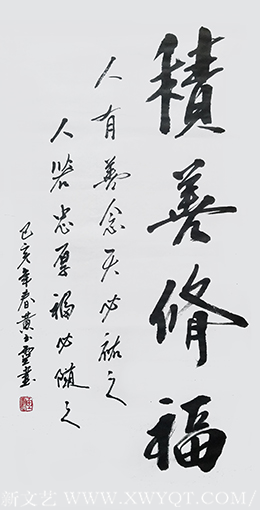 積善脩福
人有善念天必祐之
人若忠厚福必随之
己亥年春黄小雲書
新文艺 WWW.XWYQT.COM/